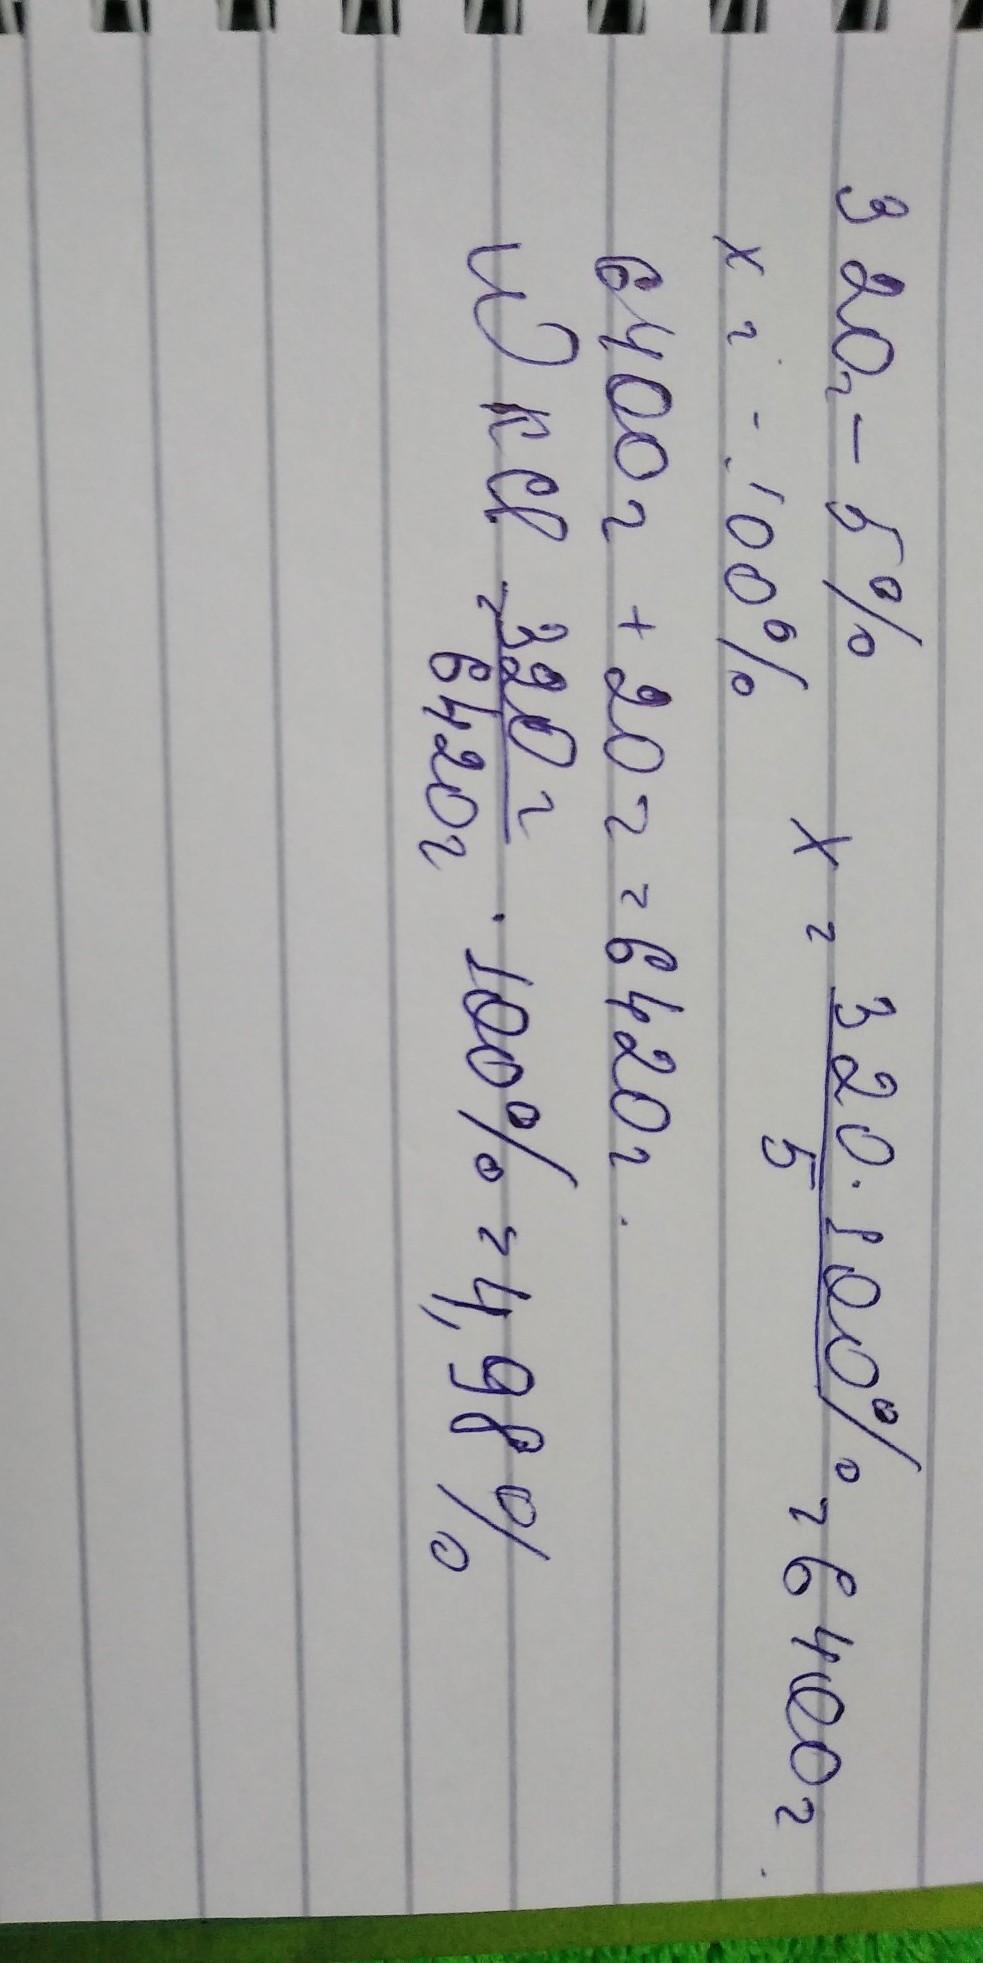 320г – 5%      x = 320·100% / 5 = 6400г.
x г - 100%
6400г + 20г = 6420г.
W KCl = 320г / 6420г · 100% = 4,98%